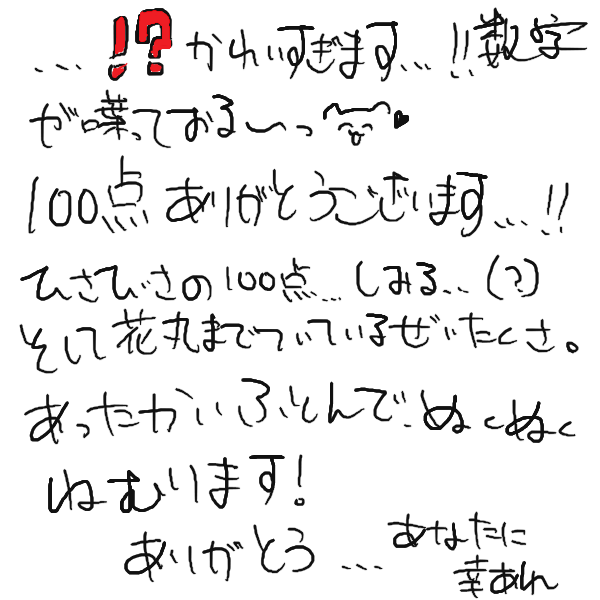 ...!?かわいすぎます...!!数字
が喋っておる〜っ
100点ありがとうございます...!!
ひさびさの100点...しみる...(?)
そして花丸までついているぜいたくさ。
あったかいふとんで、ぬくぬく
ねむります!
ありがとう...あなたに
幸あれ